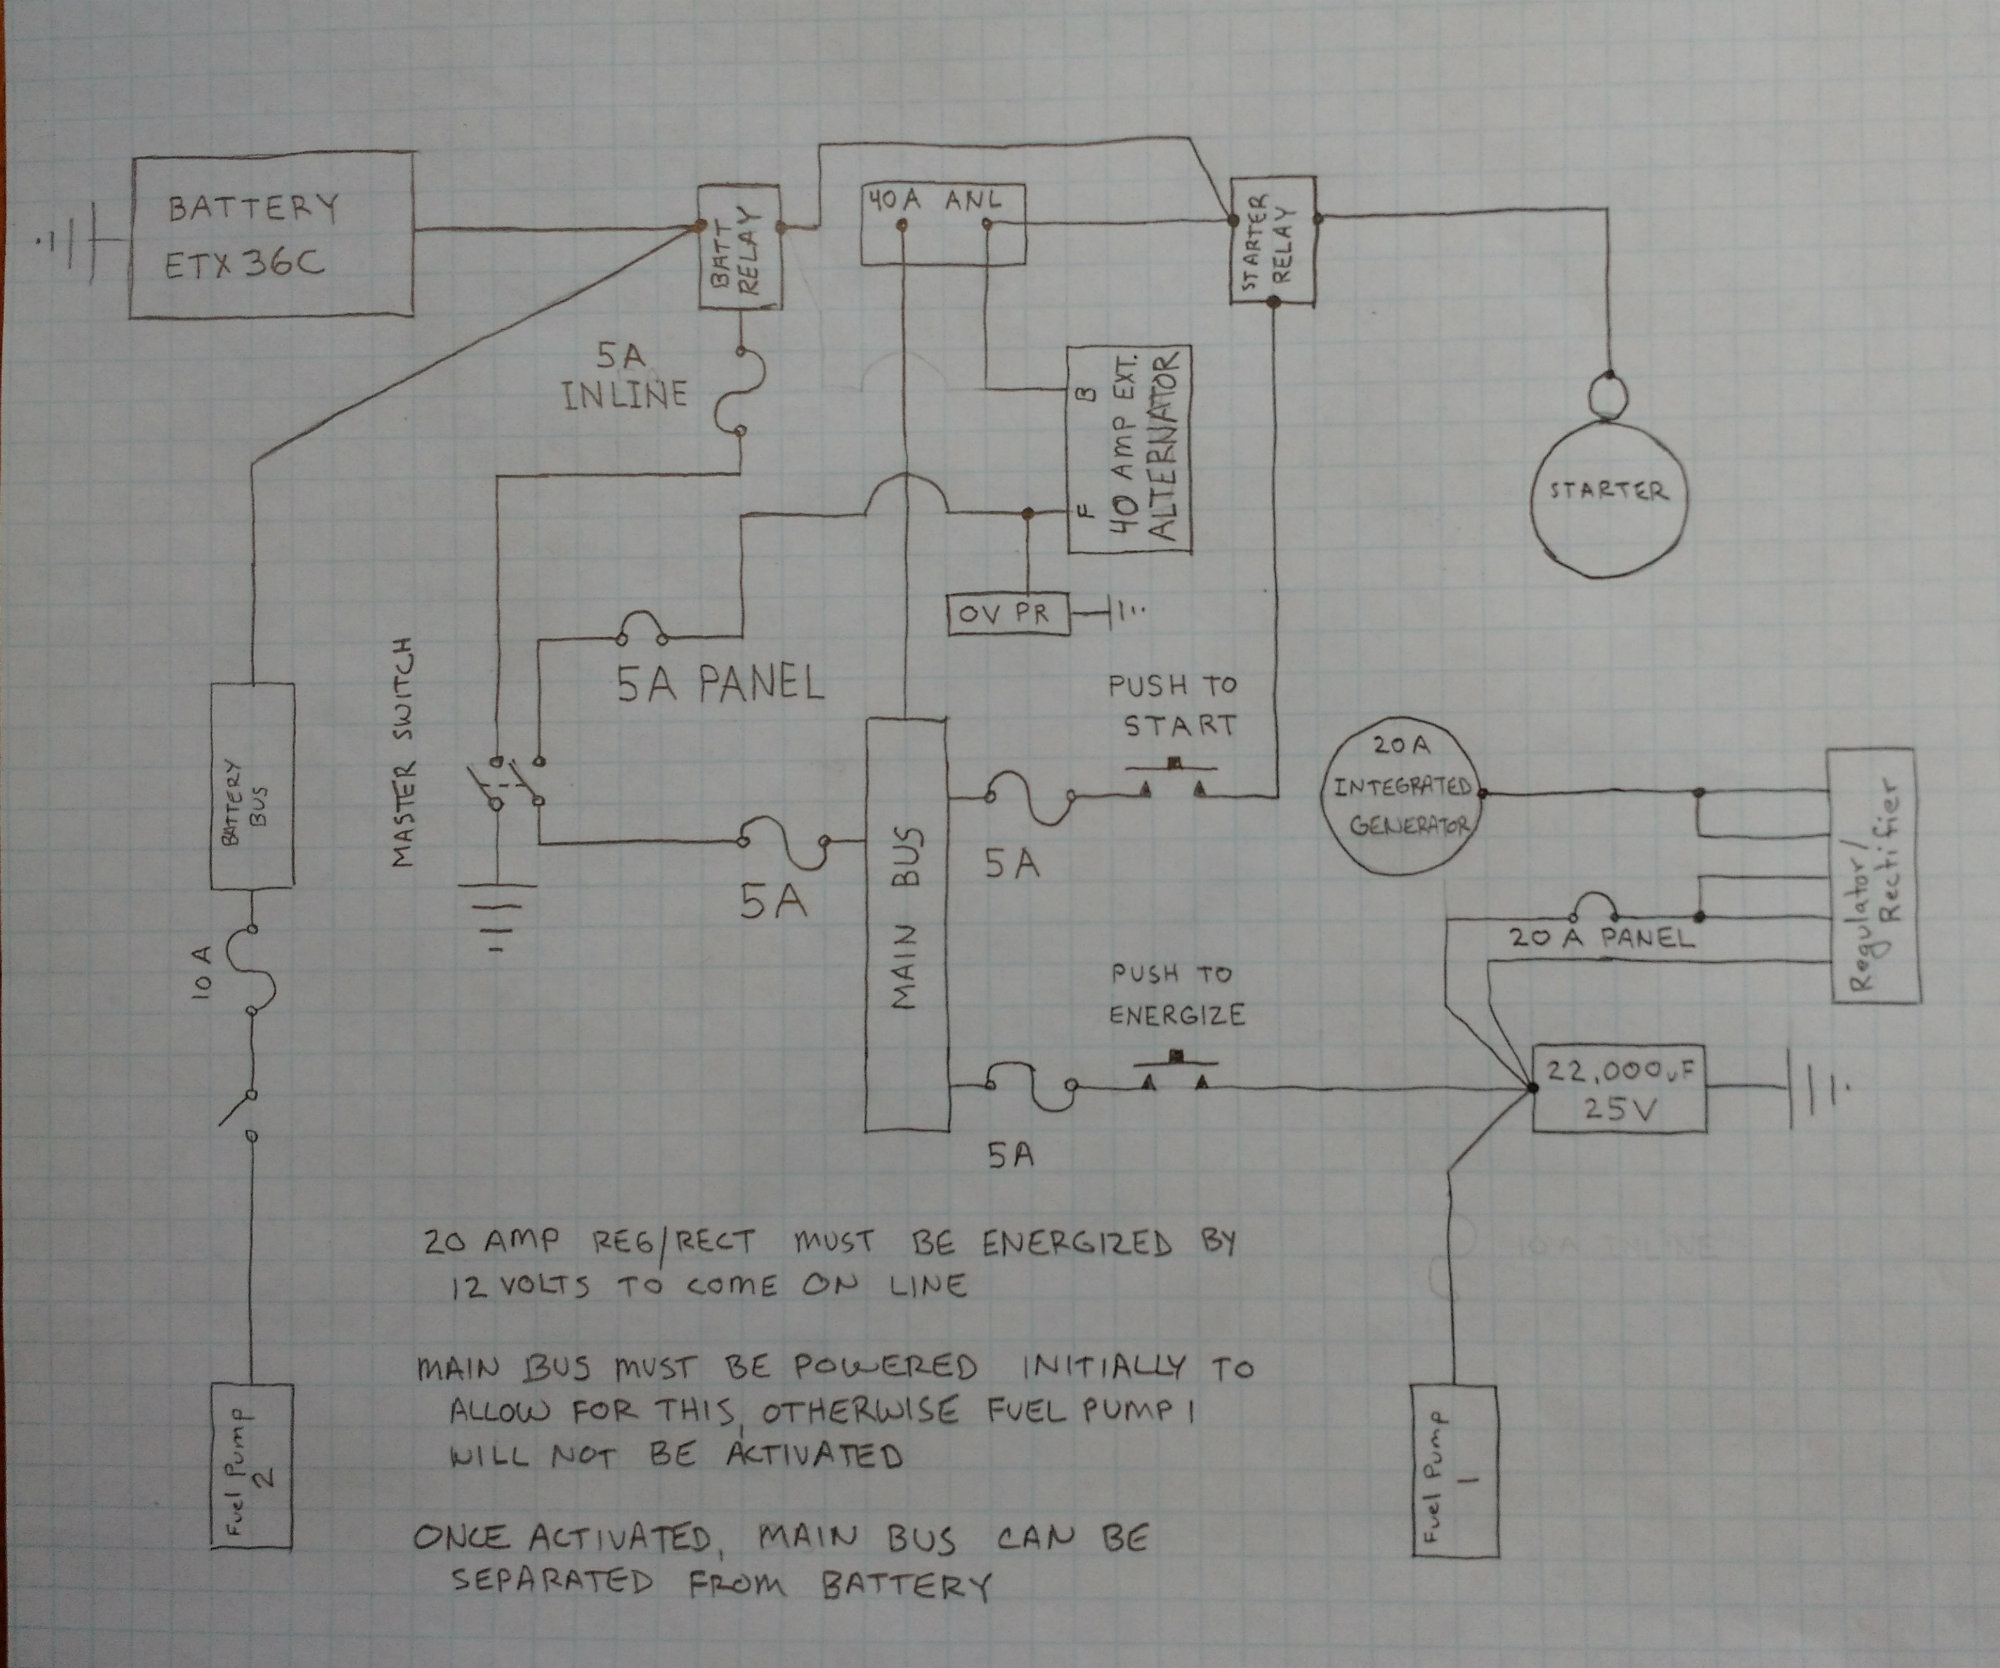 BATTERY
ETX36C
BATT
RELAY
40A ANL
STARTER
RELAY
5A
INLINE
B
F
40 AMP EXT.
ALTERNATOR
STARTER
OV PR
MASTER SWITCH
5A PANEL
PUSH TO
START
20A
INTEGRATED
GENERATOR
Regulator/
Rectifier
BATTERY
BUS
5A
MAIN BUS
5A
20 A PANEL
10 A
PUSH TO
ENERGIZE
22,000uF
25V
5A
20 AMP REG/RECT MUST BE ENERGIZED BY
12 VOLTS TO COME ON LINE
MAIN BUS MUST BE POWERED INITIALLY TO
ALLOW FOR THIS, OTHERWISE FUEL PUMP 1
WILL NOT BE ACTIVATED
ONCE ACTIVATED, MAIN BUS CAN BE
SEPARATED FROM BATTERY
Fuel Pump
2
Fuel Pump
1